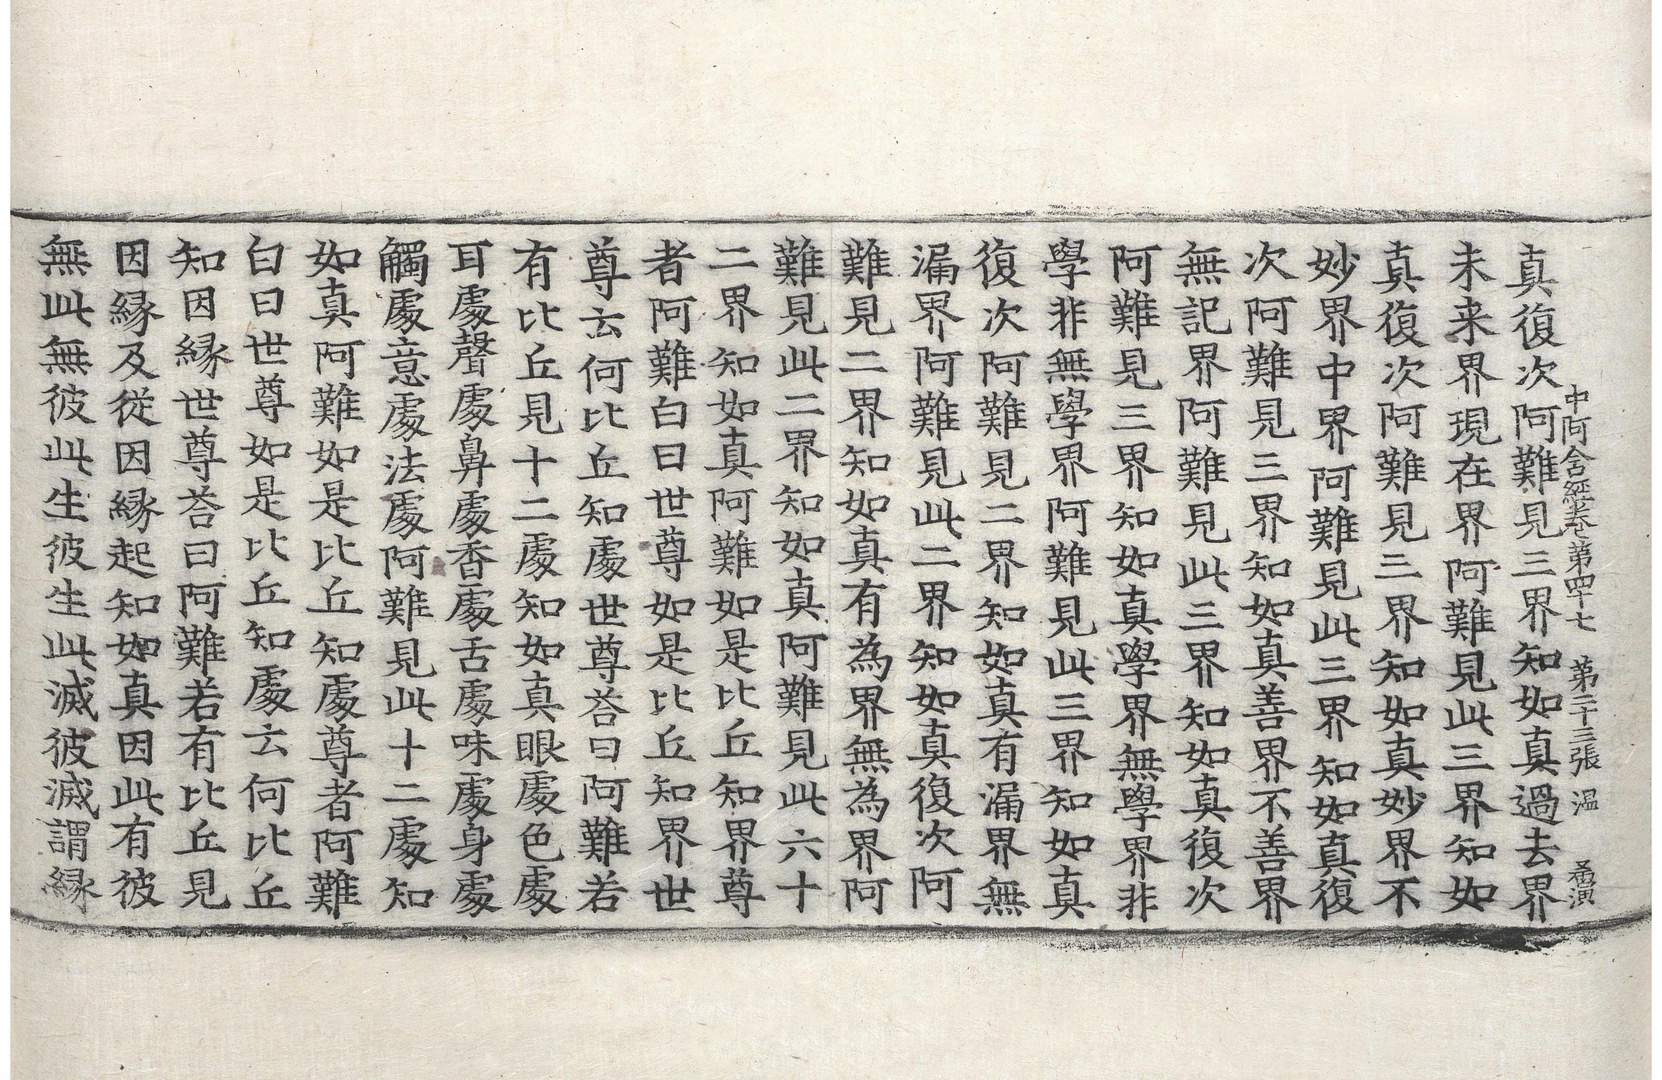 中阿含經卷第四十七 第二十三張 溫
真復次阿難見三界知如真過去界
未来界現在界阿難見此三界知如
真復次阿難見三界知如真妙界不
妙界中界阿難見此三界知如真復
次阿難見三界知如真善界不善界
無記界阿難見此三界知如真復次
阿難見三界知如真學界無學界非
學非無學界阿難見此三界知如真
復次阿難見二界知如真有漏界無
漏界阿難見此二界知如真復次阿
難見二界知如真有為界無為界阿
難見此二界知如真阿難見此六十
二界知如真阿難如是比丘知界尊
者阿難白曰世尊如是比丘知界世
尊云何比丘知處世尊荅曰阿難若
有比丘見十二處知如真眼處色處
耳處聲處鼻處香處舌處味處身處
觸處意處法處阿難見此十二處知
如真阿難如是比丘知處尊者阿難
白曰世尊如是比丘知處云何比丘
知因緣世尊荅曰阿難若有比丘見
因緣及從因緣起知如真因此有彼
無此無彼此生彼生此滅彼滅謂緣